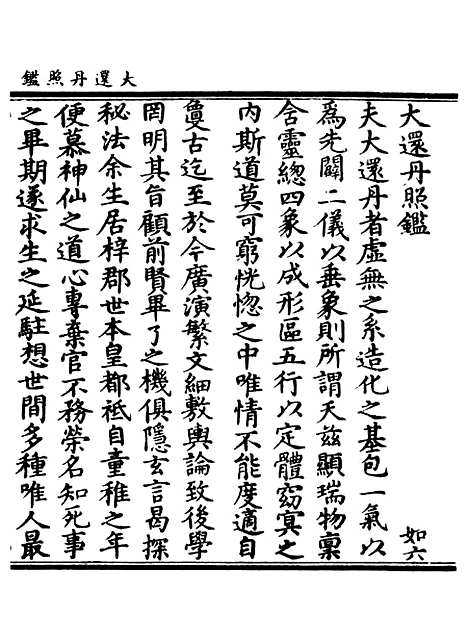 大還丹照鑑
大還丹照鑑 如六
夫大還丹者虛無之系造化之基包一氣以
爲先闢二儀以垂象則所謂天茲顯瑞物稟
含靈總四象以成形區五行以定體窈冥之
內斯道莫可窮恍惚之中唯情不能度適自
敻古迄至於今廣演繁文細敷輿論致後學
罔明其旨顧前賢畢了之機俱隱玄言曷探
秘法余生居梓郡世本皇都祗自童稚之年
便慕神仙之道心專棄官不務榮名知死事
之畢期遂求生之延駐想世間多種唯人最